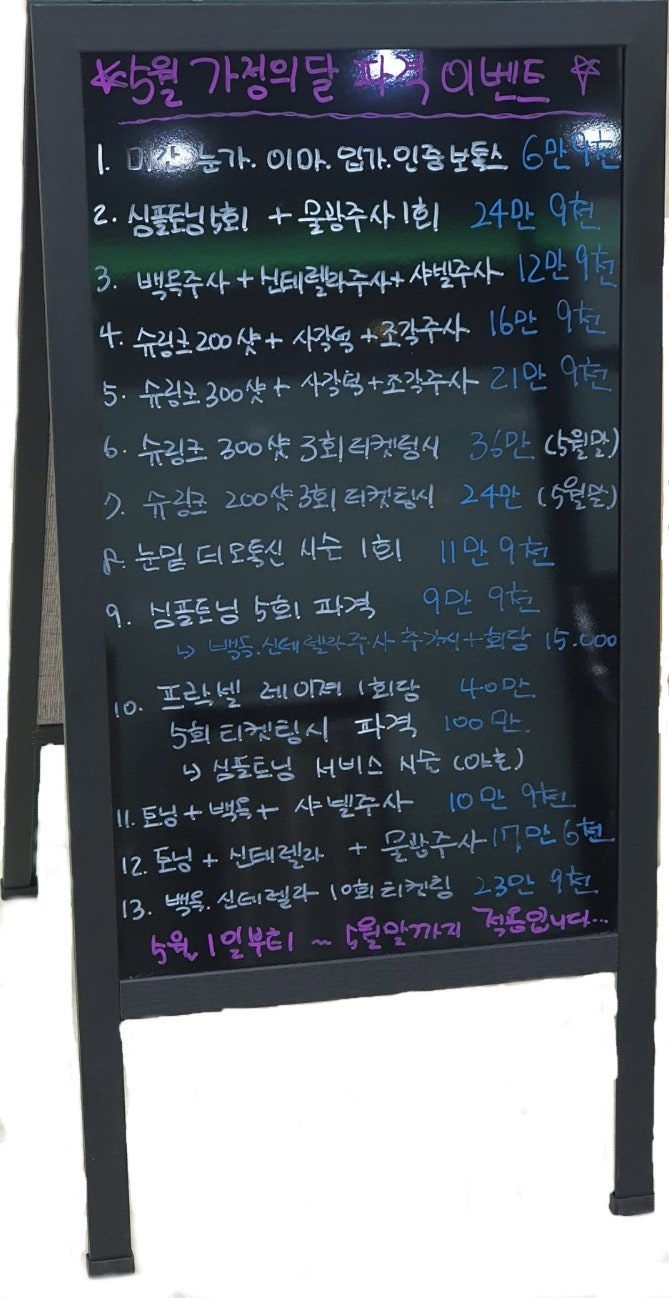 ☆5월 가정의달 파격 이벤트 ☆
1. 미간.눈가.이마.입가.인중보톡스 6만9천
2. 심플토닝5회 + 물광주사1회 24만 9천
3. 백옥주사+신데렐라주사+샤넬주사 12만9천
4. 슈링크200샷+ 사각턱+조각주사 16만 9천
5. 슈링크300샷+ 사각턱+조각주사 21만 9천
6. 슈링크 300샷 3회티켓팅시 36만 (5월말)
7. 슈링크 200샷3회 티켓팅시 24만 (5월말)
8. 눈밑 더모톡신 시순 1회 11만 9천
9. 심플토닝 5회 파격 9만 9천
↳ 백옥.신데렐라주사 추가시+회당 15.000
10. 프락셀 레이져 1회당 40만
5회티켓팅시 파격 100만
↳ 심플토닝 서비스 시순
11. 토닝+백옥+ 샤넬주사 10만 9천
12. 토닝+신데렐라 + 물광주사17만 6천
13. 백옥.신데렐라 10회티켓팅 23만 9천
5월 1일부터 ~ 5월말까지 적용입니다...